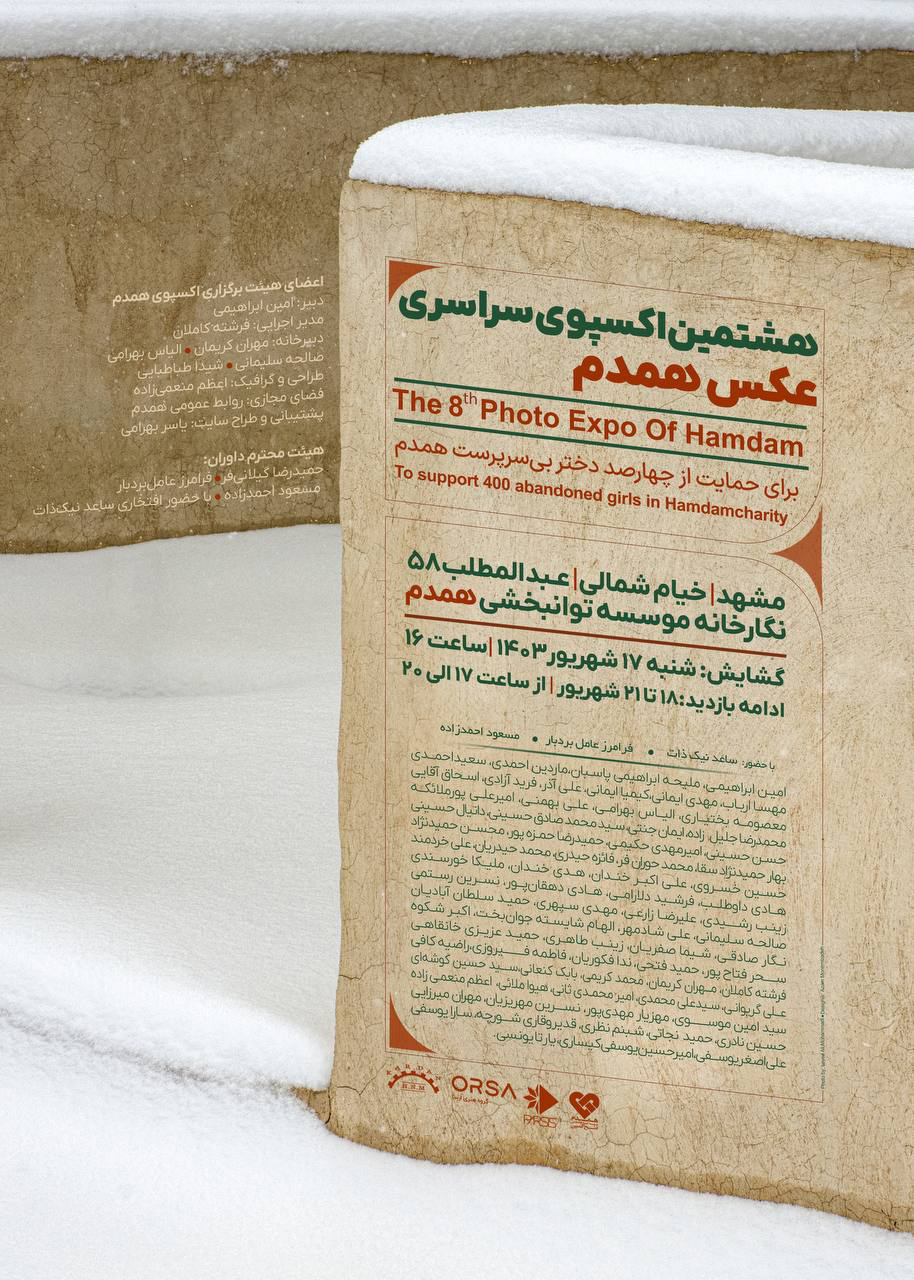 هشتمین اکسپوی سراسری
عکس همدم
The 8th Photo Expo Of Hamdam
برای حمایت از چهارصد دختر بی‌سرپرست همدم
To support 400 abandoned girls in Hamdamcharity
مشهد | خیام شمالی | عبدالمطلب ۵۸
نگارخانه موسسه توانبخشی همدم
گشایش: شنبه ۱۷ شهریور ۱۴۰۳ | ساعت ۱۶
ادامه بازدید: ۱۸ تا ۲۱ شهریور | از ساعت ۱۷ الی ۲۰
با حضور: ساعد نیک ذات • فرامرز عامل بردبار • مسعود احمدزاده
امین ابراهیمی، ملیحه ابراهیمی پاسبان، ماردین احمدی، سعید احمدی
مهسا ارباب، مهدی ایمانی، کیمیا ایمانی، علی آذر، فرید آزادی، اسحاق آقایی
معصومه بختیاری، الیاس بهرامی، علی بهمنی، امیرعلی پورملائکه
محمدرضا جلیل زاده، ایمان جنتی، سید محمد صادق حسینی، دانیال حسینی
حسن حسینی، امیرمهدی حکیمی، حمیدرضا حمزه پور، محسن حمیدنژاد
بهار حمیدنژاد سقا، محمد حوران فر، فائزه حیدری، محمد حیدریان، علی خردمند
حسین خسروی، علی اکبر خندان، هدی خندان، ملیکا خورسندی
هادی داوطلب، فرشید دلارامی، هادی دهقان‌پور، نسرین رستمی
زینب رشیدی، علیرضا زارعی، مهدی سپهری، حمید سلطان آبادیان
صالحه سلیمانی، علی شادمهر، الهام شایسته جوان‌بخت، اکبر شکوه
نگار صادقی، شیما صفریان، زینب طاهری، حمید عزیزی خانقاهی
سحر فتاح پور، حمید فتحی، ندا فکوریان، فاطمه فیروزی، راضیه کافی
فرشته کاملان، مهران کریمان، محمد کریمی، بابک کنعانی، سید حسین کوشه‌ای
علی گریوانی، سیدعلی محمدی، امیر محمدی ثانی، هیوا ملائی، اعظم منعمی زاده
سید امین موسوی، مهزیار مهدی‌پور، نسرین مهریزیان، مهران میرزایی
حسین نادری، حمید نجاتی، شبنم نظری، قدیر وقاری شورچه، سارا یوسفی
علی‌اصغر یوسفی، امیرحسین یوسفی کیساری، یارتا یونسی.
KARDAN
ORSA
PARSIS
اعضای هیئت برگزاری اکسپوی همدم
دبیر: امین ابراهیمی
مدیر اجرایی: فرشته کاملان
دبیرخانه: مهران کریمان • الیاس بهرامی
صالحه سلیمانی • شیدا طباطبایی
طراحی و گرافیک: اعظم منعمی‌زاده
فضای مجازی: روابط عمومی همدم
پشتیبانی و طراح سایت: یاسر بهرامی
هیئت محترم داوران:
حمیدرضا گیلانی‌فر • فرامرز عامل‌بردبار
مسعود احمدزاده • با حضور افتخاری ساعد نیک‌ذات